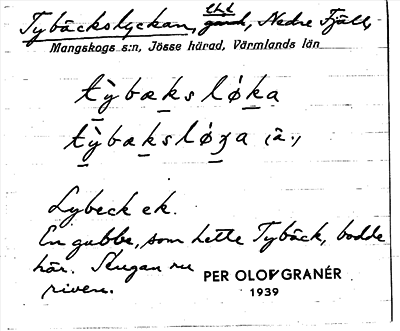 Tybäckslyckan, Nedre Fjäll,
Mangskogs s:n, Jösse härad, Värmlands län
tỳbakslǿka
tỳbakslǿʒa (ä.)
Lybeck ek.
En gubbe, som hette Tybäck, bodde
här. Stugan nu
riven.
PER OLOF GRANÉR
1939